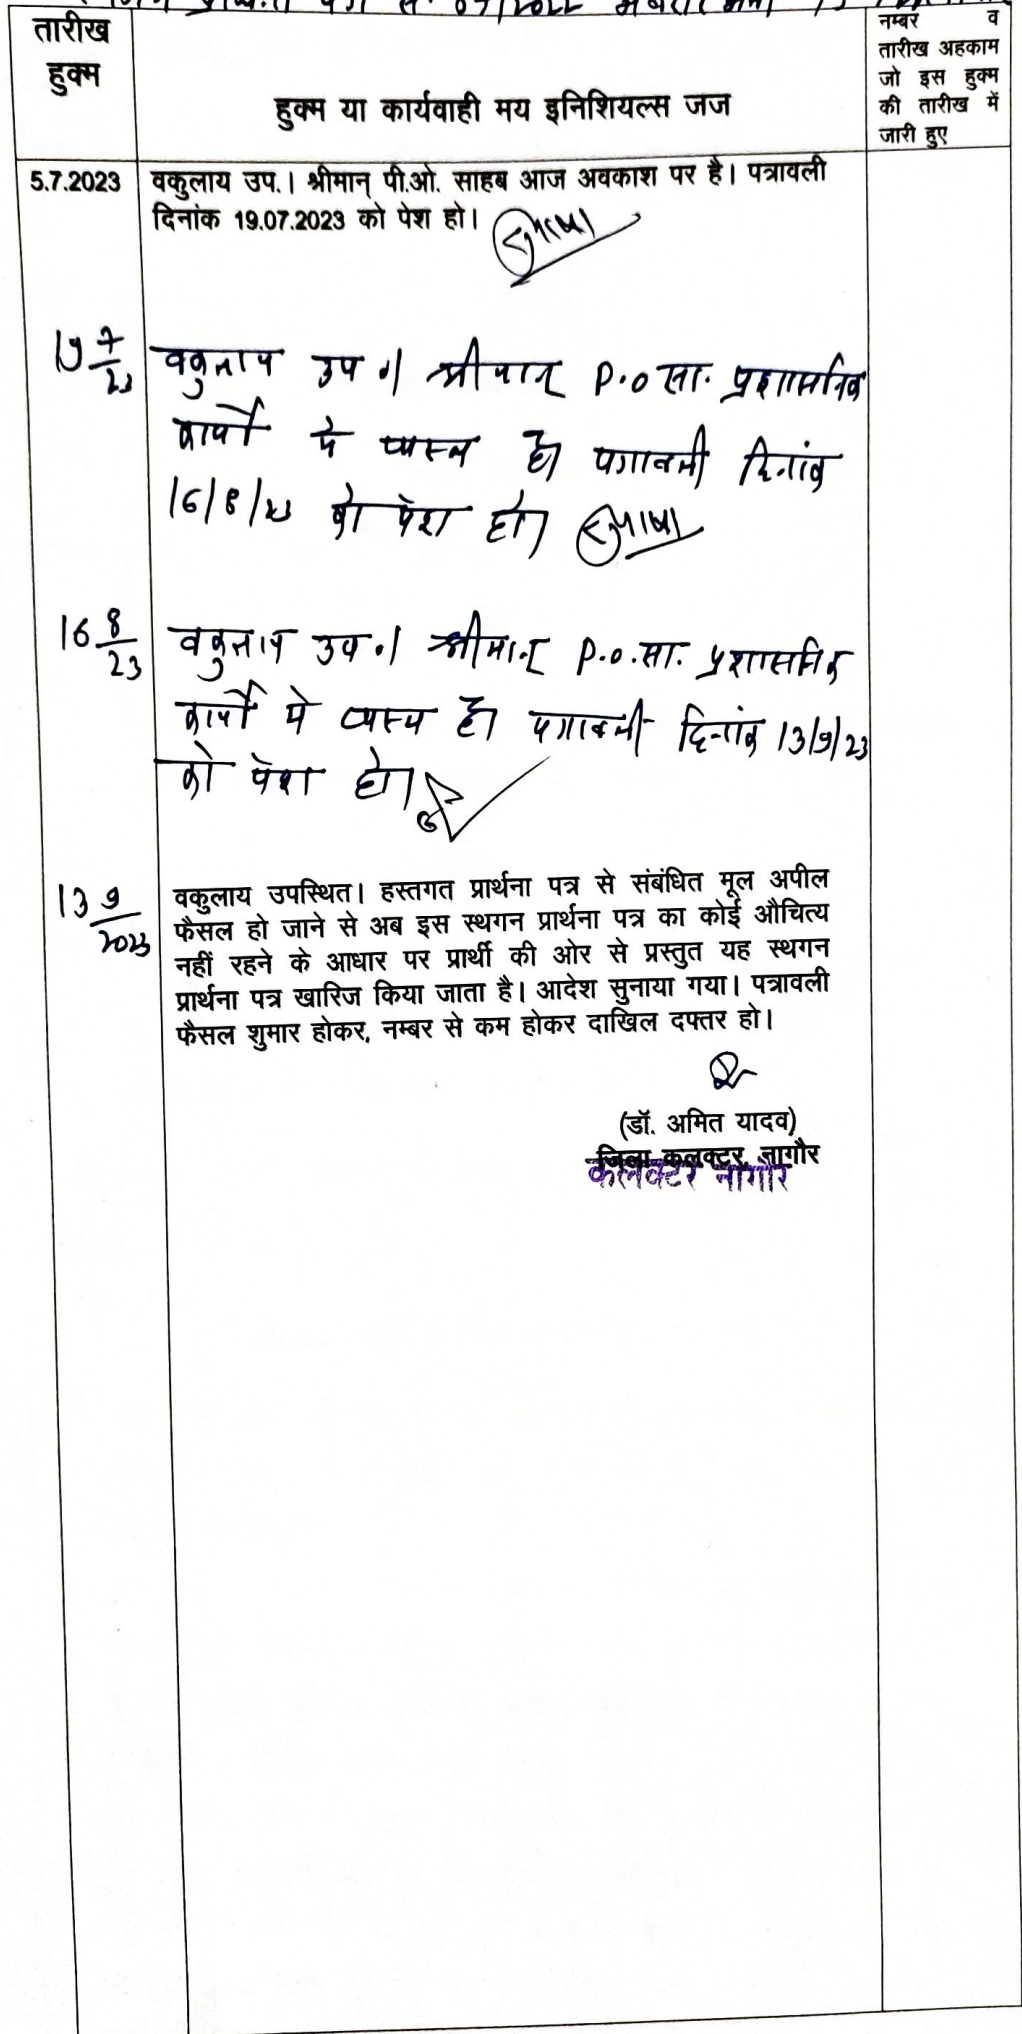 पत्र सं. 09/2022
तारीख
हुक्म
हुक्म या कार्यवाही मय इनिशियल्स जज
नम्बर व
तारीख अहकाम
जो इस हुक्म
की तारीख में
जारी हुए
5.7.2023 वकुलाय उप.। श्रीमान् पी.ओ. साहब आज अवकाश पर है। पत्रावली
दिनांक 19.07.2023 को पेश हो।
19/7/23 वकुलाय उप.। श्रीमान् P.O सा. प्रशासनिक
कार्यो मे व्यस्त है। पत्रावली दिनांक
16/8/23 को पेश हो।
16 8/23 वकुलाय उप.। श्रीमान् P.O. सा. प्रशासनिक
कार्यो मे व्यस्त है। पत्रावली दिनांक 13/9/23
को पेश हो।
13 9/2023 वकुलाय उपस्थित। हस्तगत प्रार्थना पत्र से संबंधित मूल अपील
फैसल हो जाने से अब इस स्थगन प्रार्थना पत्र का कोई औचित्य
नहीं रहने के आधार पर प्रार्थी की ओर से प्रस्तुत यह स्थगन
प्रार्थना पत्र खारिज किया जाता है। आदेश सुनाया गया। पत्रावली
फैसल शुमार होकर, नम्बर से कम होकर दाखिल दफ्तर हो।
(डॉ. अमित यादव)
जिला कलक्टर, नागौर
कलक्टर नागौर